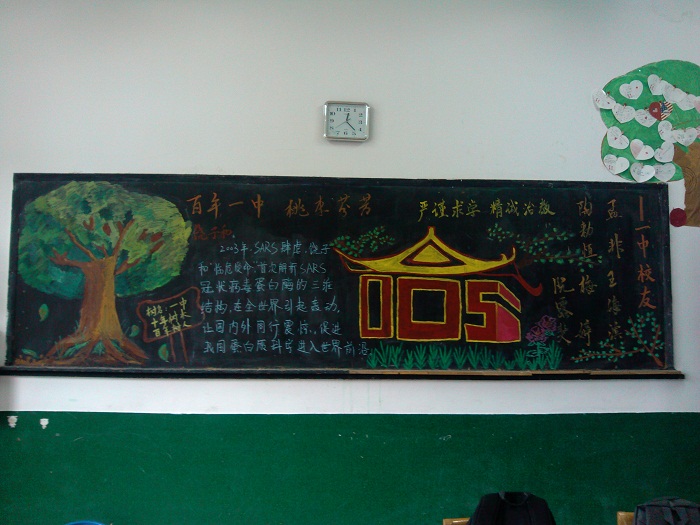 百年一中 桃李芬芳
饶子和
2003年,SARS肆虐,饶子
和"临危受命",首次解析SARS
冠状病毒蛋白酶的三维
结构,在全世界引起轰动,
让国内外同行震惊,促进
我国蛋白质科学进入世界前沿
树名:一中
十年树木
百年树人
严谨求实 精诚治教
105
一中校友
孟非 王海滨
陶勃慎